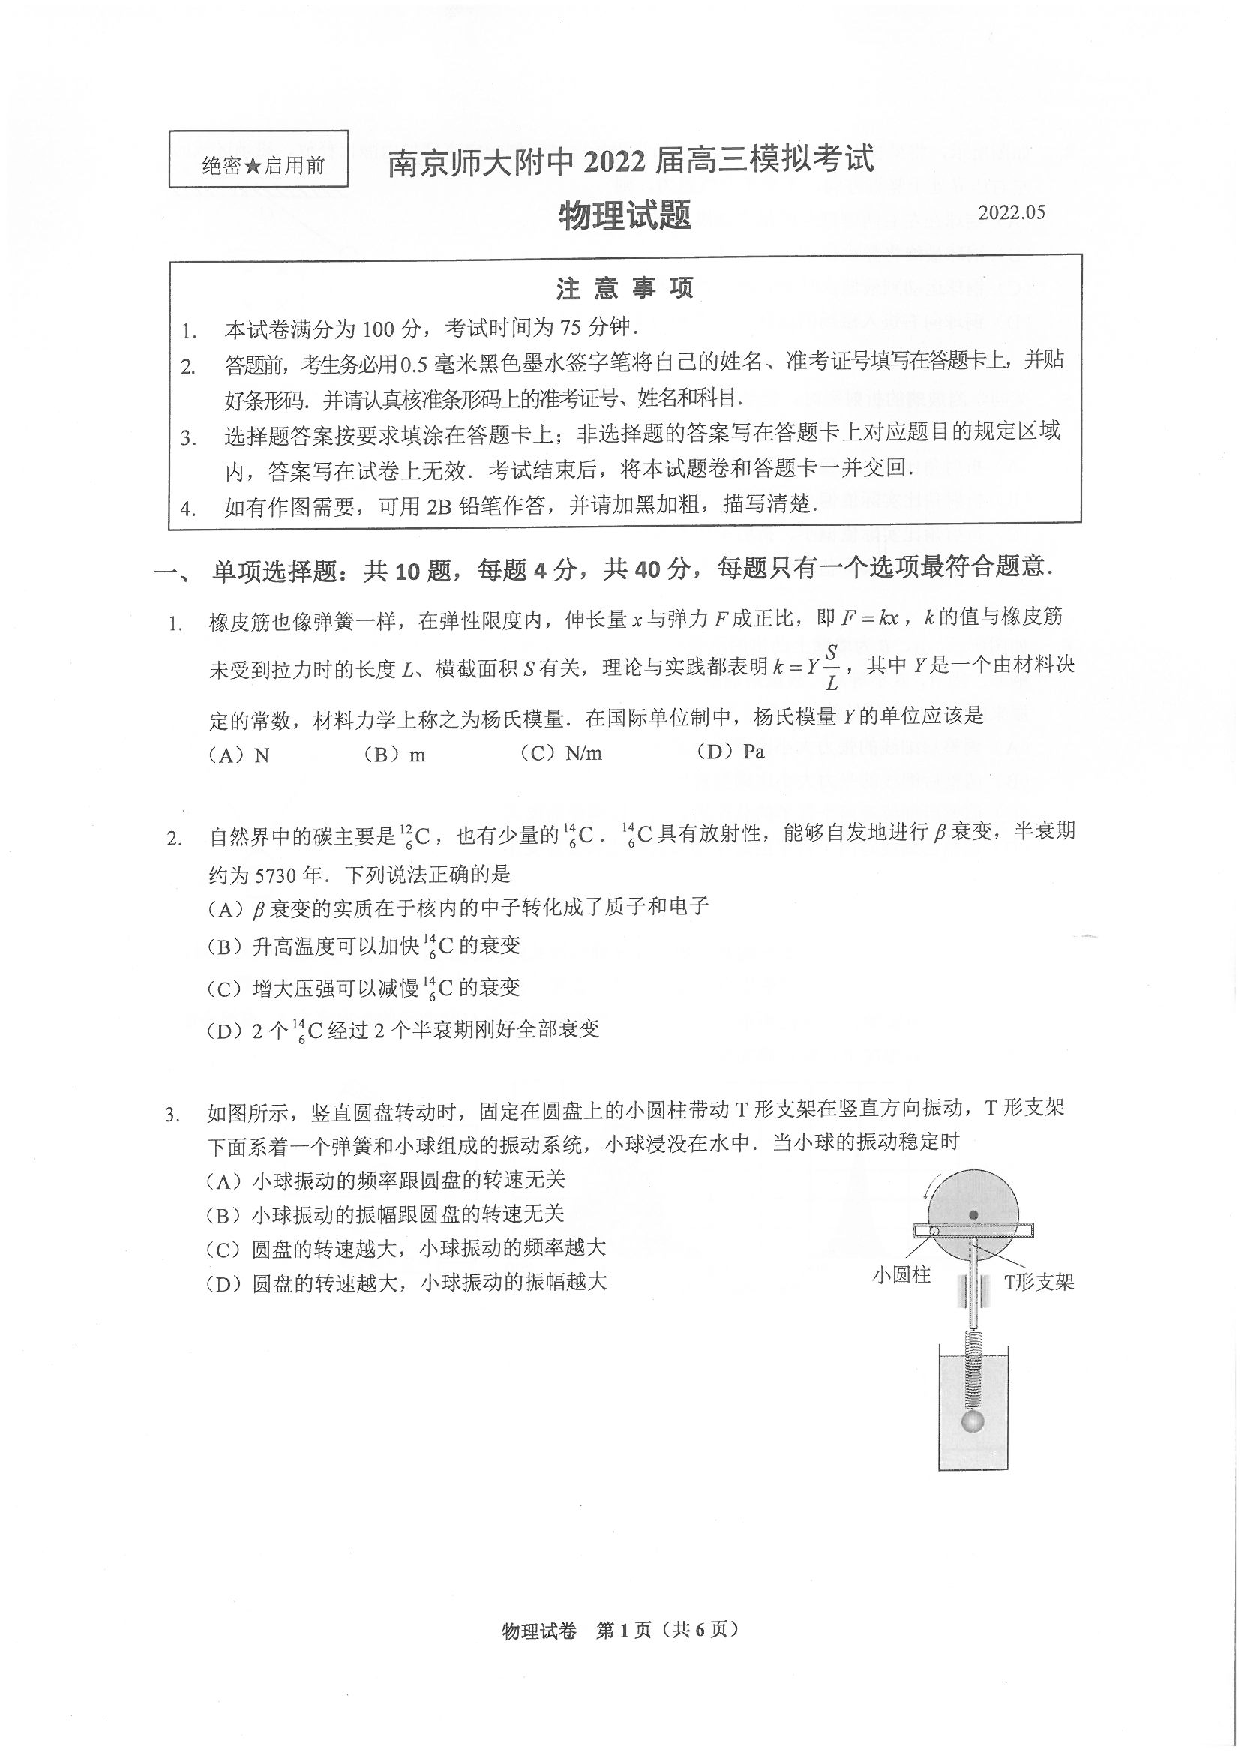 绝密★启用前
南京师大附中 2022 届高三模拟考试
物理试题
2022.05
注 意 事 项
1. 本试卷满分为 100 分，考试时间为 75 分钟．
2. 答题前，考生务必用0.5 毫米黑色墨水签字笔将自己的姓名、准考证号填写在答题卡上，并贴
好条形码．并请认真核准条形码上的准考证号、姓名和科目．
3. 选择题答案按要求填涂在答题卡上；非选择题的答案写在答题卡上对应题目的规定区域
内，答案写在试卷上无效．考试结束后，将本试题卷和答题卡一并交回．
4. 如有作图需要，可用 2B 铅笔作答，并请加黑加粗，描写清楚．
一、 单项选择题：共 10 题，每题 4 分，共 40 分，每题只有一个选项最符合题意．
1. 橡皮筋也像弹簧一样，在弹性限度内，伸长量 x 与弹力 F 成正比，即 F = kx，k 的值与橡皮筋
未受到拉力时的长度 L、横截面积 S 有关，理论与实践都表明 k = Y S/L，其中 Y 是一个由材料决
定的常数，材料力学上称之为杨氏模量．在国际单位制中，杨氏模量 Y 的单位应该是
（A）N （B）m （C）N/m （D）Pa
2. 自然界中的碳主要是 ¹²₆C，也有少量的 ¹⁴₆C．¹⁴₆C 具有放射性，能够自发地进行 β 衰变，半衰期
约为 5730 年．下列说法正确的是
（A）β 衰变的实质在于核内的中子转化成了质子和电子
（B）升高温度可以加快 ¹⁴₆C 的衰变
（C）增大压强可以减慢 ¹⁴₆C 的衰变
（D）2 个 ¹⁴₆C 经过 2 个半衰期刚好全部衰变
3. 如图所示，竖直圆盘转动时，固定在圆盘上的小圆柱带动 T 形支架在竖直方向振动，T 形支架
下面系着一个弹簧和小球组成的振动系统，小球浸没在水中．当小球的振动稳定时
（A）小球振动的频率跟圆盘的转速无关
（B）小球振动的振幅跟圆盘的转速无关
（C）圆盘的转速越大，小球振动的频率越大
（D）圆盘的转速越大，小球振动的振幅越大
小圆柱
T形支架
物理试卷 第 1 页（共 6 页）